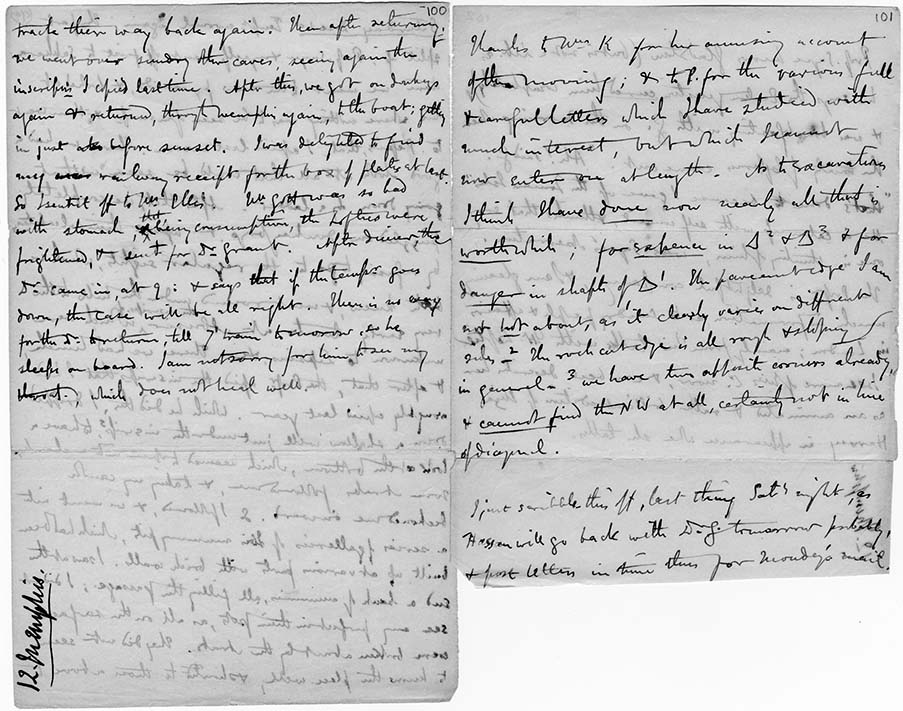 100
track their way back again. Then after returning
we went over sundry other caves, seeing again the
inscrips I copied last time. After this, we got on donkeys
again & returned, through Memphis again, to the boat; getting
in just before sunset. I was delighted to find
my railway receipt for the box of plates at last.
So I sent it off to Mr Ellis. Mr was so bad
with stomach, that fearing consumption, the Lofties were
frightened, & sent for Dr Grant. After dinner, the
Dr came in, at 9: & says that if the temp goes
down, the case will be all right. There is no way
for the Dr to return, till 7 train tomorrow, so he
sleeps on board. I am not sorry for him to see my
throat, which does not heal well.
12. Memphis.
101
Thanks to Mrs K for her amusing account
of the morning; & to P. for the various full
& careful letters which I have studied with
much interest, but which I cannot
now enter on at length. As to excavations
I think I have done now nearly all that is
worth while, for expence in Δ² & Δ³ & for
danger in shafts of Δ¹. The pavement edge I am
not about, as it clearly varies on different
sides – ² The rock cut edge is all rough & sloping
in general – ³ we have two opposite corners already,
& cannot find the NW at all, certainly not in line
of diagonal.
I just scribble this off, last thing Saty night, as
Hassan will go back with Dr G. tomorrow probably,
& post letters in time thus for Monday's mail.